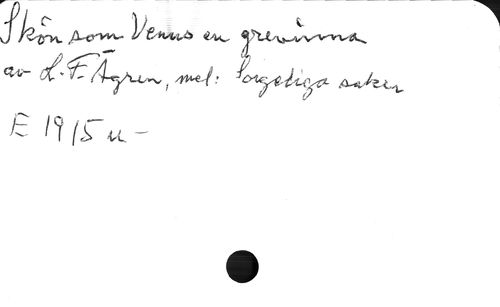 Skön som Venus en grevinna
av L. F. Ågren, mel: Sorgetiga saker
E 1915 u –